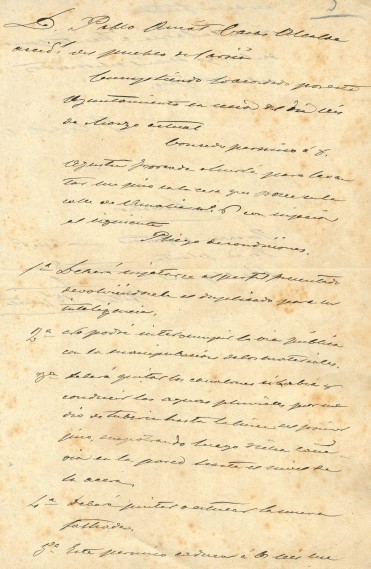 D. Pablo Casas Alcalde
accid.l del pueblo de Sarriá
Cumpliendo lo acordado por este
Ayuntamiento en sesión del día seis
de Marzo actual
Concedo permiso á D.
Agustin para levan
tar un piso en la casa que posee en la
calle de con sujeción
al siguiente
Pliego de condiciones.
1ª Deberá sujetarse al perfil presentado
devolviéndosele el duplicado para su
inteligencia.
2ª No podrá interrumpir la via pública
con la manipulación de los materiales.
3ª Deberá quitar los canalones si habia y
conducir las aguas pluviales por me
dio de tubería hasta la línea del primer
piso, empotrando luego dicha cañe
ria en la pared hasta el nivel de
la acera.
4ª Deberá pintar o estucar la nueva
fachada.
5ª Este permiso caduca á los seis me